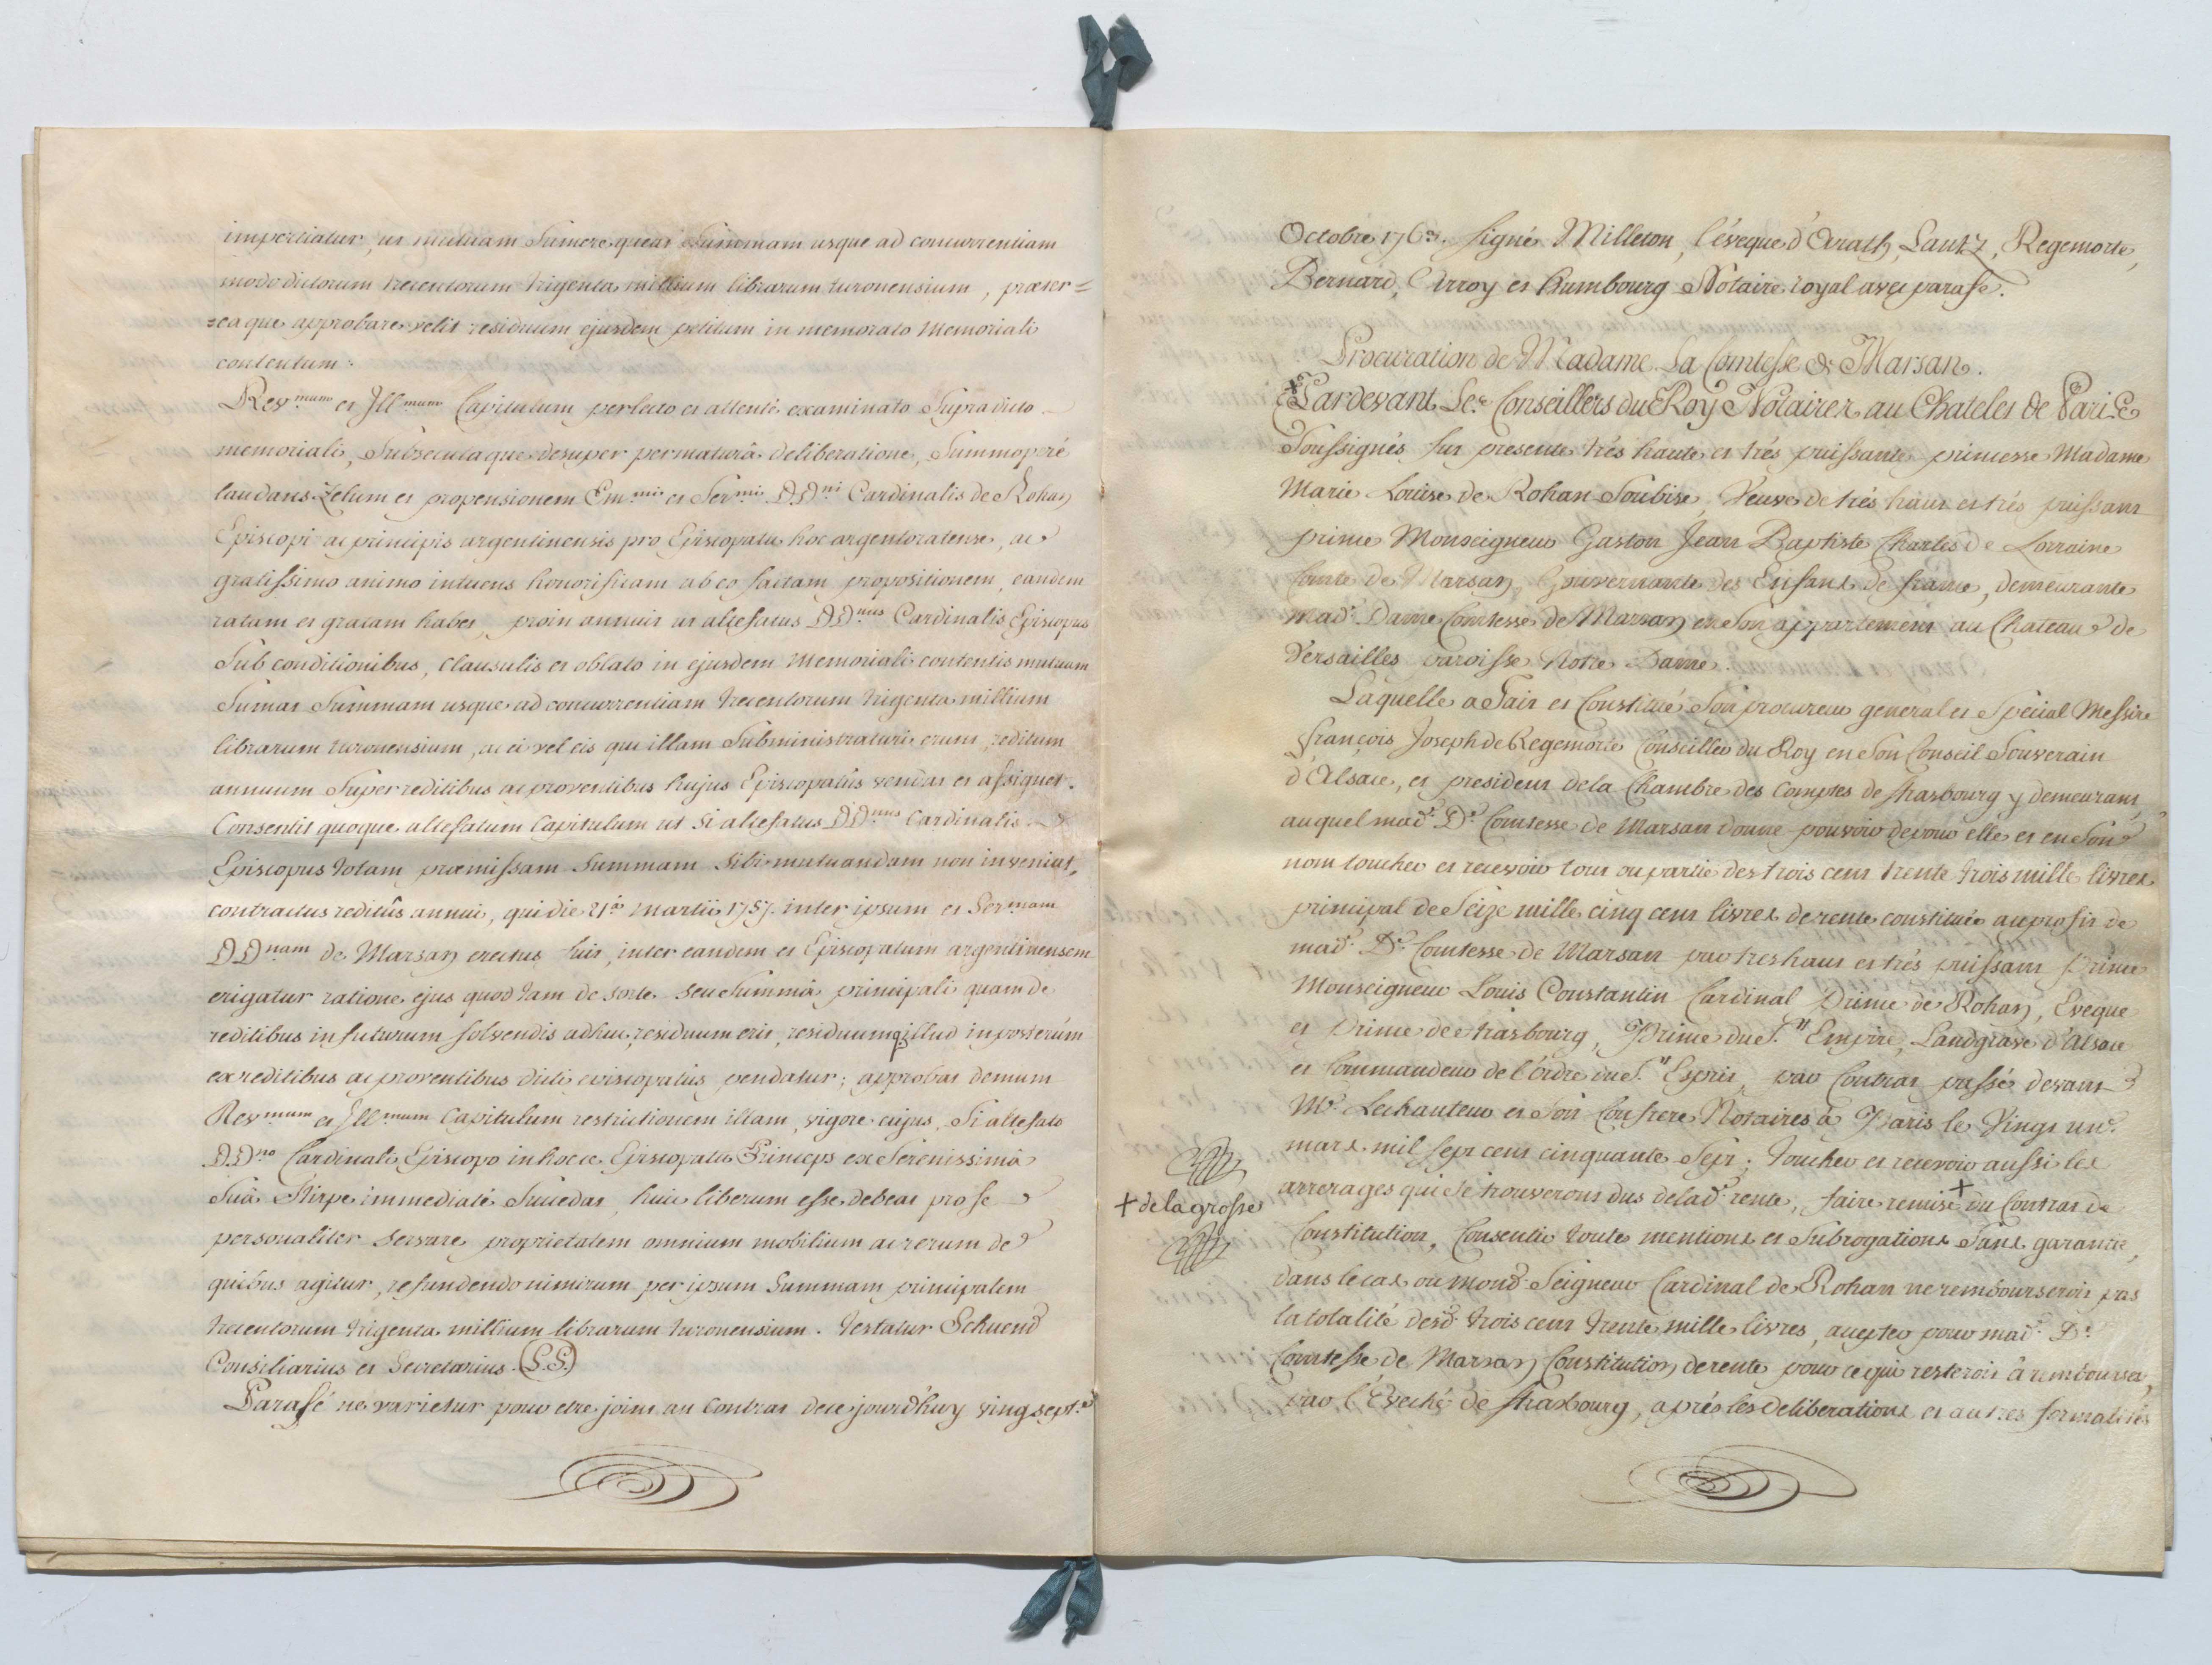 impertiatur, ut mutuam Sumere queat Summam usque ad concurrentiam
modo dictorum trecentorum triginta millium librarum turonensium, præter=
=eaque approbare velit residuum ejusdem petitum in memorato Memoriali
contentum.
Rev.mum et Ill.mum Capitulum perlecto et attente examinato Supradicto
memoriali, Subsecutaque desuper permaturâ deliberatione, Summoperé
laudans Zelum et propensionem Em.mi et Ser.mi DD.ni Cardinalis de Rohan
Episcopi ac principis argentinensis pro Episcopatu hoc argentoratense, ac
gratissimo animo intuens honorificam ab eo factam propositionem, eandem
ratam et gratam habet, proin annuit ut altefatus DD.nus Cardinalis Episcopus
Sub conditionibus, Clausulis et oblato in ejusdem Memoriali contentis mutuam
Sumat Summam usque ad concurrentiam trecentorum triginta millium
librarum turonensium, ac ei vel eis qui illam Subministraturi erunt, reditum
annuum Super reditibus ac proventibus hujus Episcopatûs vendat et assignet.
Consentit quoque altefatum Capitulum ut Si altefatus DD.nus Cardinalis
Episcopus totam præmissam Summam Sibi mutuandam non inveniat,
contractus reditûs annui, qui die 21.a martii 1757. inter ipsum et Ser.mam
DD.nam de Marsan erectus fuit, inter eandem et Episcopatum argentinensem
erigatur ratione ejus quod tam de sorte seu Summâ principali quam de
reditibus in futurum solvendis adhuc residuum erit, residuumq illud in posterùm
ex reditibus ac proventibus dicti episcopatus pendatur; approbat demum
Rev.mum et Ill.mum Capitulum restrictionem illam, vigore cujus, Si altefato
DD.no Cardinali Episcopo in hocce Episcopatu Princeps ex Serenissimâ
Suâ Stirpe immediaté Succedat, huic liberum esse debeat pro se
personaliter Servare proprietatem omnium mobilium ac rerum de
quibus agitur, refundendo nimirum per ipsum Summam principalem
trecentorum triginta millium librarum turonensium. testatur Schuend
Consiliarius et Secretarius. (L.S.)
Parafé ne varietur pour etre joint au Contrat de ce jourd'huy vingt sept.e
Octobre 1763. signé Milleton, l'éveque d'Arath, Lantz, Regemorte,
Bernard, Arroy et humbourg Notaire royal avec parafe.
Procuration de Madame La Comtesse de Marsan.
Pardevant Les Conseillers du Roy Notaires au Chatelet de Paris
Soussignés fut presente trés haute et trés puissante princesse Madame
Marie Louise de Rohan Soubise, Veuve de trés haut et trés puissant
prince Monseigneur Gaston Jean Baptiste Charles de Lorraine
Comte de Marsan, Gouvernante des Enfans de france, demeurante
mad.e Dame Comtesse de Marsan en Son appartement au Chateau de
Versailles paroisse Notre Dame.
Laquelle a Fait et Constitué Son procureur general et Special Messire
françois Joseph de Regemorte Conseiller du Roy en Son Conseil Souverain
d'Alsace, et president de la Chambre des Comptes de strasbourg y demeurant,
auquel mad.e D.e Comtesse de Marsan donne pouvoir de pour elle et en Son
nom toucher et recevoir tout ou partie des trois cent trente trois mille livres
principal de Seize mille cinq cent livres de rente constituée au profit de
mad.e D.e Comtesse de Marsan par tres haut et trés puissant Prince
Monseigneur Louis Constantin Cardinal Prince de Rohan, Eveque
et Prince de strasbourg, Prince du S.t Empire, Landgrave d'Alsace
et Commandeur de l'ordre du S.t Esprit, par Contrat passé devant
M.e Lechanteur et Son Confrere Notaires à Paris le Vingt un.
mars mil sept cent cinquante Sept; toucher et recevoir aussi les
arrerages qui Se trouveront dus de lad.e rente, faire remise + du Contrat de
+ de la grosse
Constitution, Consentir toutes mentions et Subrogations Sans garantie,
dans le cas ou mond. Seigneur Cardinal de Rohan ne rembourseroit pas
la totalité desd. trois cent trente mille livres, accepter pour mad.e D.e
Comtesse de Marsan Constitution de rente pour ce qui resteroit à rembourser,
par l'Evéché de strasbourg, aprés les deliberations et autres formalités